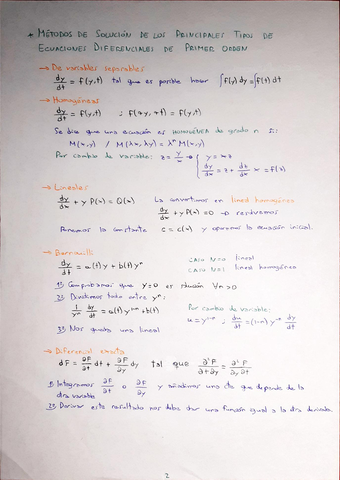 * MÉTODOS DE SOLUCIÓN DE LOS PRINCIPALES TIPOS DE
ECUACIONES DIFERENCIALES DE PRIMER ORDEN
→ De variables separables
dy/dt = f(y,t) tal que es posible hacer ∫F(y) dy = ∫f(t) dt
→ Homogéneas
dy/dt = f(y,t) ; f(λy, λt) = f(y,t)
Se dice que una ecuación es HOMOGÉNEA de grado n si:
M(x,y) / M(λx, λy) = λⁿ M(x,y)
Por cambio de variable: z = y/x → { y = xz
dy/dx = z + dz/dx x = f(z)
→ Lineales
dy/dx + y P(x) = Q(x) La convertimos en lineal homogénea
dy/dx + y P(x) = 0 → resolvemos
Ponemos la constante c = c(x) y operamos la ecuación inicial.
→ Bernouilli
dy/dt = a(t) y + b(t) yⁿ CASO N=0 lineal
CASO N=1 lineal homogénea
1º Comprobamos que y=0 es solución ∀n>0
2º Dividimos todo entre yⁿ: Por cambio de variable:
1/yⁿ dy/dt = a(t) y¹⁻ⁿ + b(t) u = y¹⁻ⁿ , du/dt = (1-n) y⁻ⁿ dy/dt
3º Nos queda una lineal
→ Diferencial exacta
dF = ∂F/∂t dt + ∂F/∂y dy tal que ∂²F/∂t∂y = ∂²F/∂y∂t
1º Integramos ∂F/∂t o ∂F/∂y y añadimos una cte que dependa de la
otra variable
2º Derivar este resultado nos debe dar una función igual a la otra derivada.
2